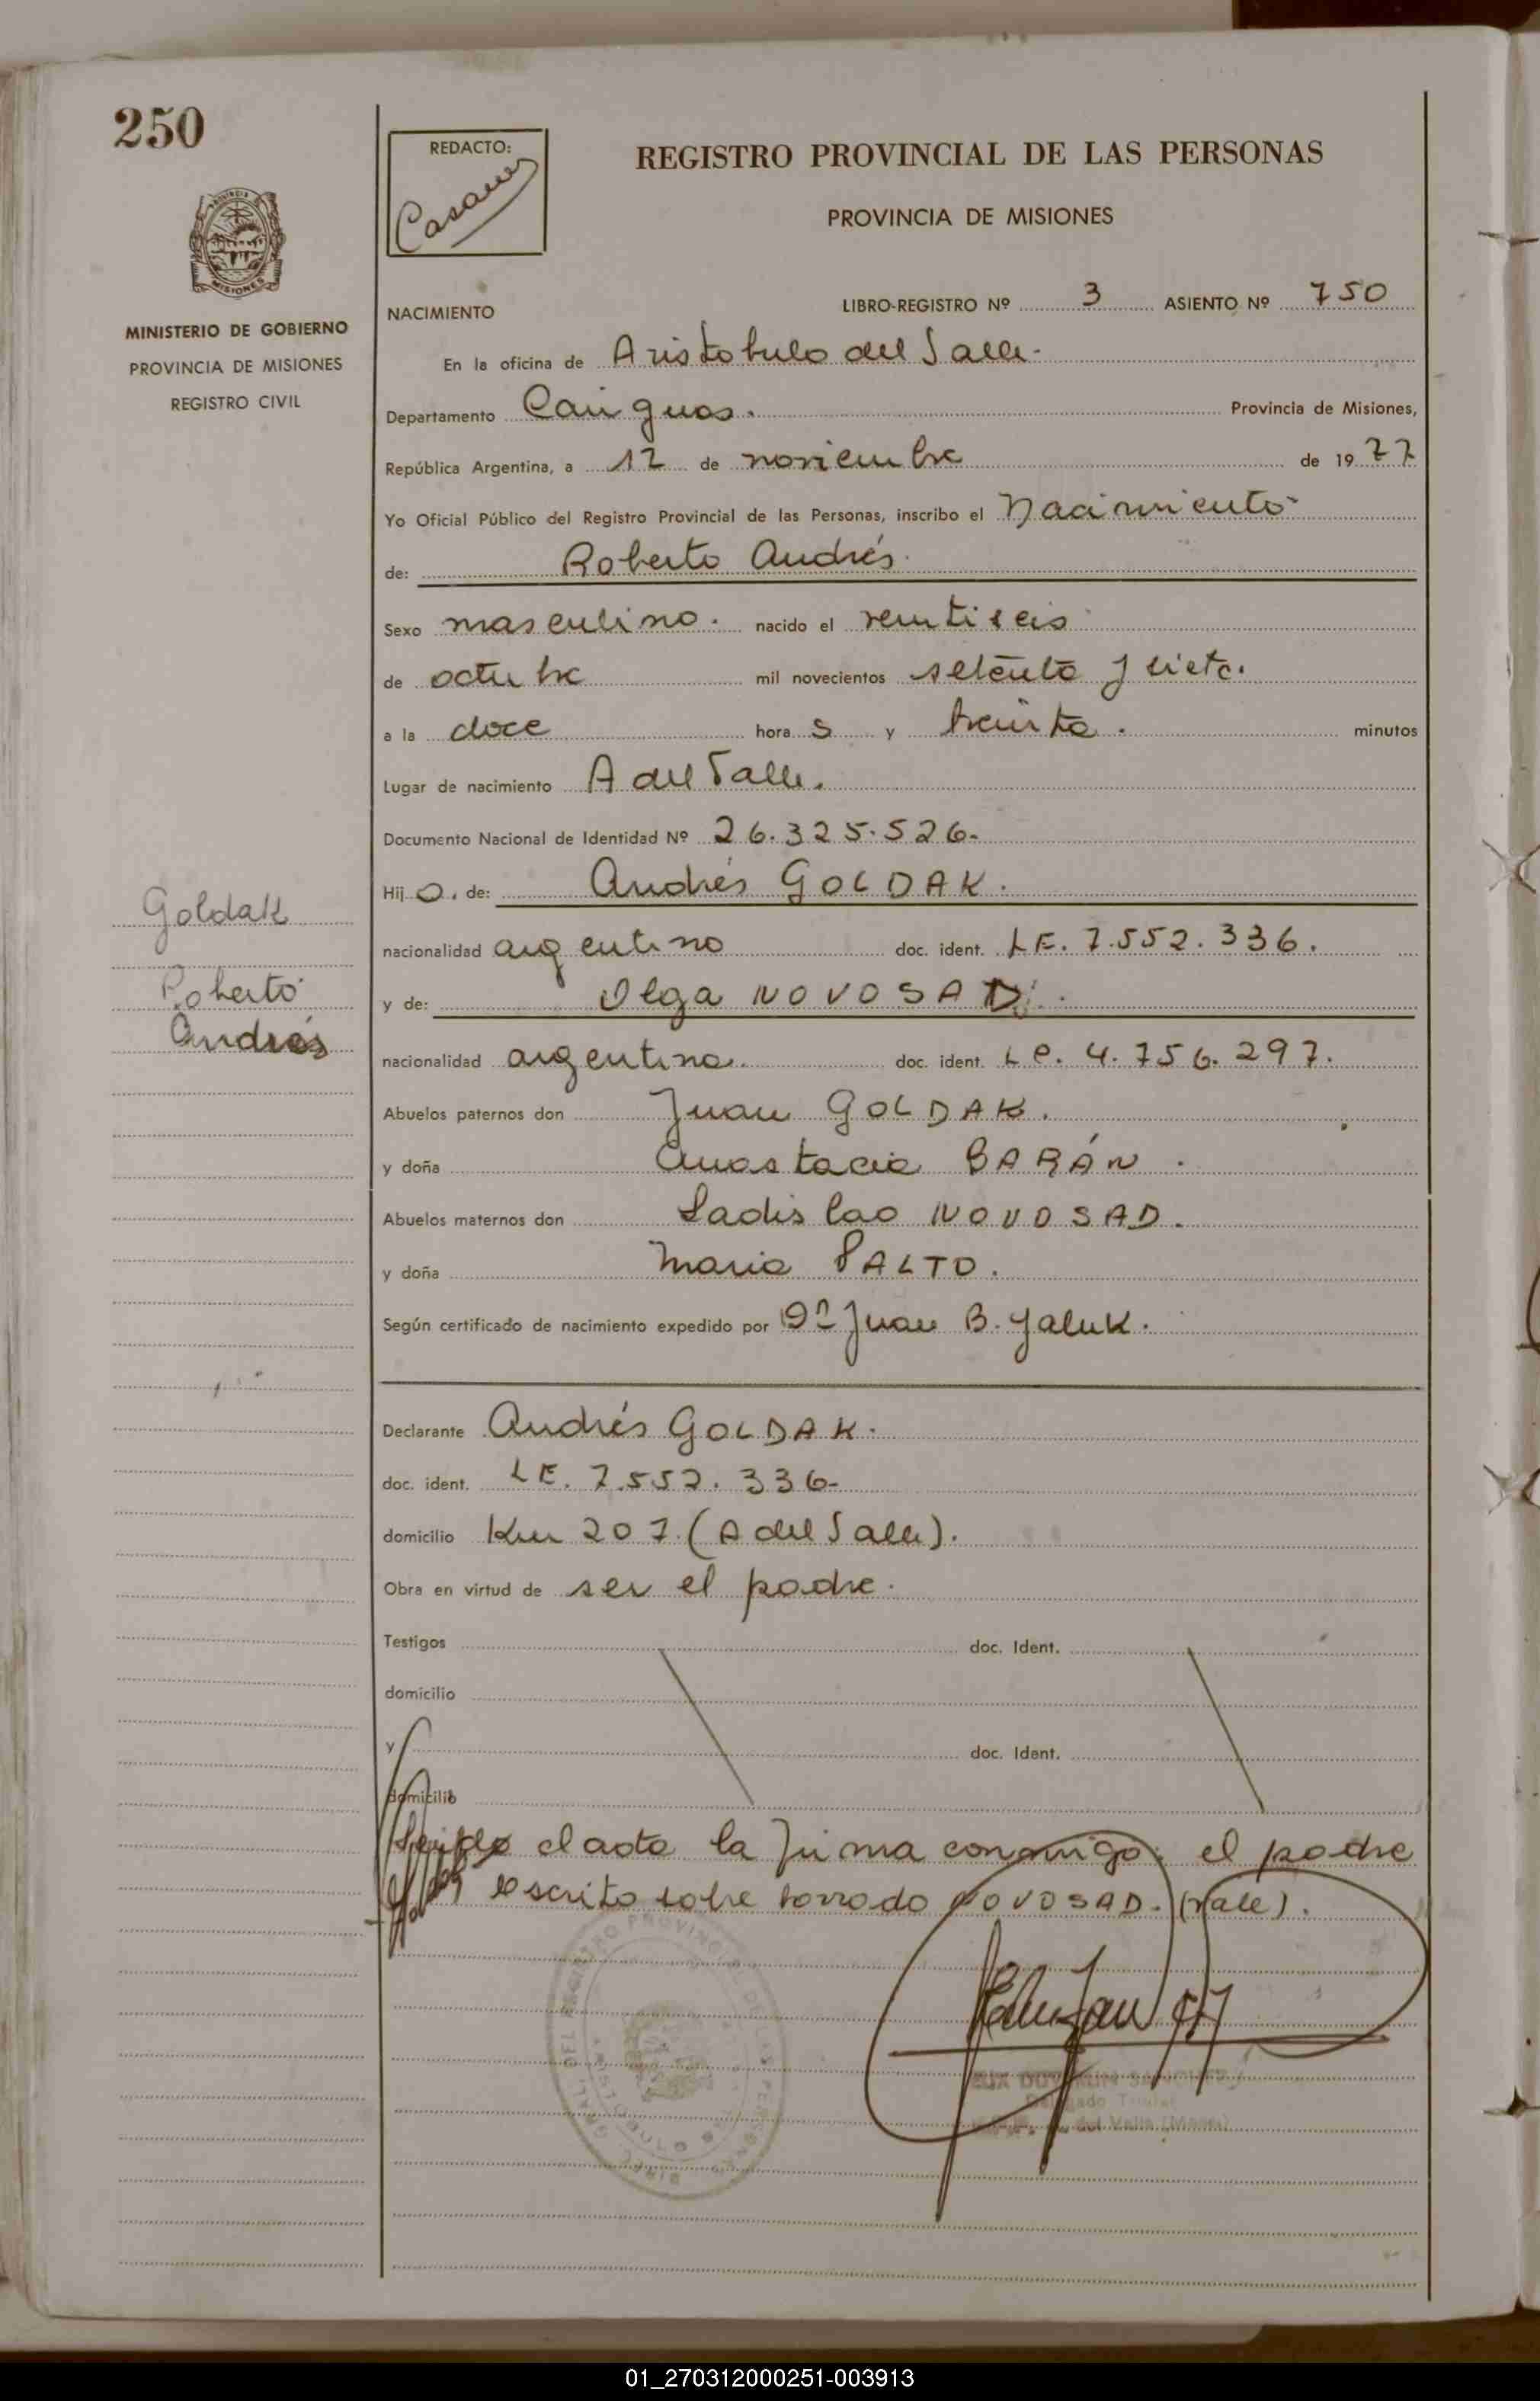 250
REDACTO:
REGISTRO PROVINCIAL DE LAS PERSONAS
PROVINCIA DE MISIONES
MINISTERIO DE GOBIERNO
PROVINCIA DE MISIONES
REGISTRO CIVIL
NACIMIENTO LIBRO-REGISTRO Nº 3 ASIENTO Nº 750
En la oficina de Aristobulo del Valle.
Departamento Cainguas. Provincia de Misiones,
República Argentina, a 12 de noviembre de 1977
Yo Oficial Público del Registro Provincial de las Personas, inscribo el Nacimiento
de: Roberto Andrés.
Sexo masculino. nacido el veintiseis
de octubre mil novecientos setenta y siete.
a la doce hora s y treinta. minutos
Lugar de nacimiento A del Valle.
Documento Nacional de Identidad Nº 26.325.526.
Hij o. de: Andrés GOLDAK.
nacionalidad argentino doc. ident. LE. 7.552.336.
y de: Olga NOVOSAD.
nacionalidad argentina. doc. ident. LC. 4.756.297.
Abuelos paternos don Juan GOLDAK.
y doña Anastacia BARÁN.
Abuelos maternos don Ladislao NOVOSAD.
y doña Maria PALTO.
Según certificado de nacimiento expedido por Dn Juan B. Yaluk.
Declarante Andrés GOLDAK.
doc. ident. LE. 7.552.336-
domicilio Km 207. (A del Valle).
Obra en virtud de ser el padre.
Testigos doc. Ident.
domicilio
y doc. Ident.
domicilio
el acta la firma conmigo: el padre
escrito sobre borrado NOVOSAD. (vale).
Goldak
Roberto
Andrés
del Valle
01_270312000251-003913